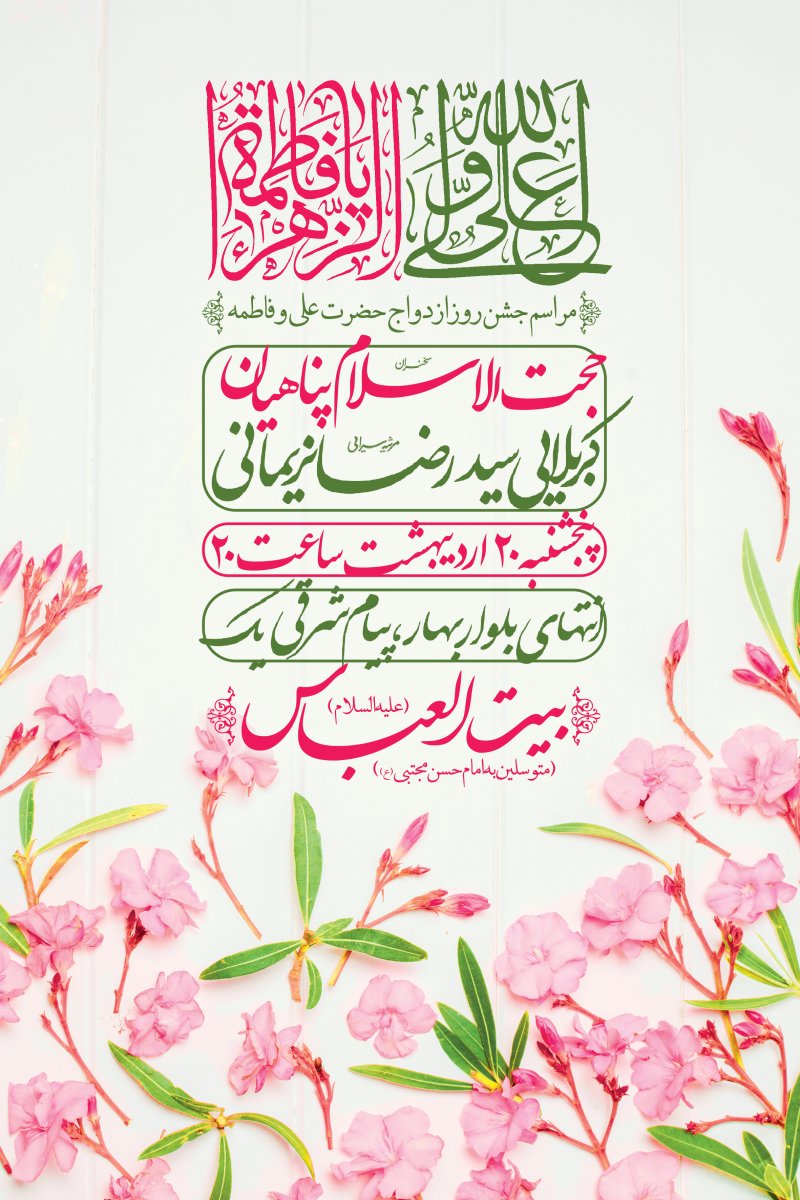 علی ولی الله
یا فاطمة الزهرا
مراسم جشن روز ازدواج حضرت علی و فاطمه
سخنران
حجت الاسلام پناهیان
مرثیه سرایی
کربلایی سید رضا نریمانی
پنجشنبه ۲۰ اردیبهشت ساعت ۲۰
انتهای بلوار بهار، پیام شرقی یک
بیت العباس (علیه السلام)
(متوسلین به امام حسن مجتبی (ع))